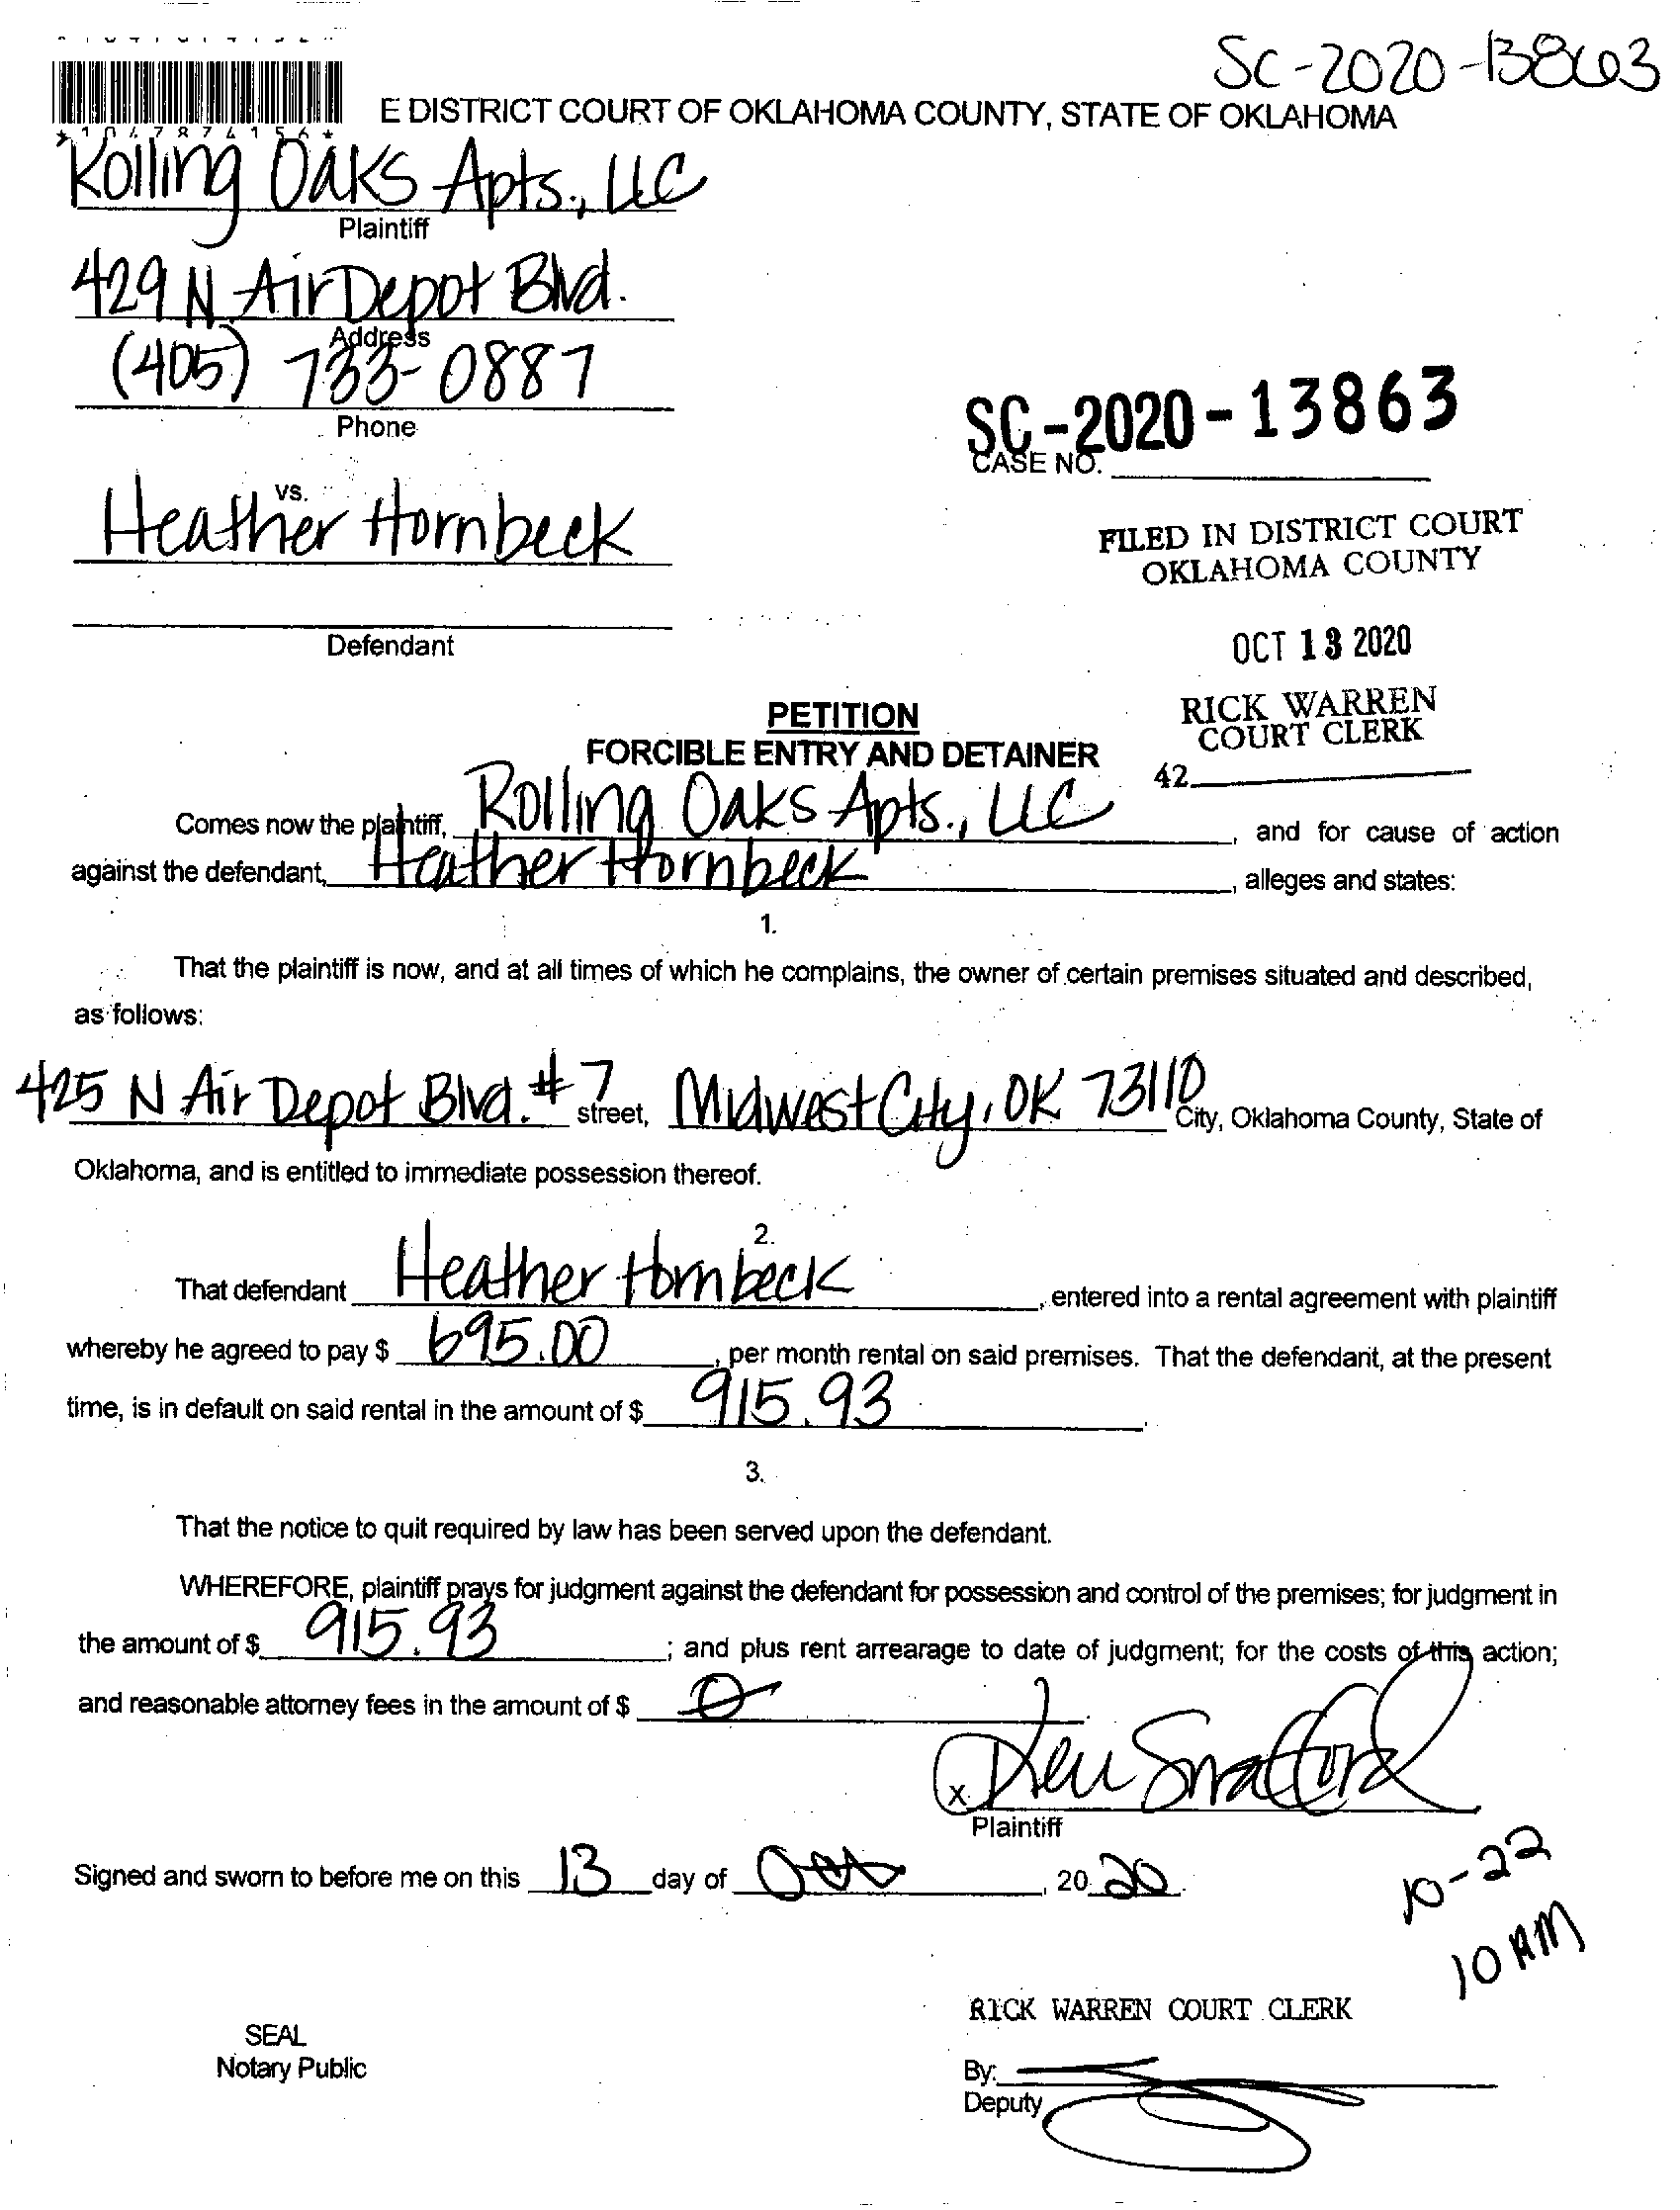 SC-2020-13863
*1047874156*
E DISTRICT COURT OF OKLAHOMA COUNTY, STATE OF OKLAHOMA
Rolling Oaks Apts., LLC
Plaintiff
429 N Air Depot Blvd.
Address
(405) 733-0887
Phone
SC-2020-13863
CASE NO.
vs.
Heather Hornbeck
FILED IN DISTRICT COURT
OKLAHOMA COUNTY
Defendant
OCT 13 2020
RICK WARREN
COURT CLERK
42
PETITION
FORCIBLE ENTRY AND DETAINER
Comes now the plaintiff, Rolling Oaks Apts., LLC, and for cause of action
against the defendant, Heather Hornbeck, alleges and states:
1.
That the plaintiff is now, and at all times of which he complains, the owner of certain premises situated and described,
as follows:
425 N Air Depot Blvd. #7 street, Midwest City, OK 73110 City, Oklahoma County, State of
Oklahoma, and is entitled to immediate possession thereof.
2.
That defendant Heather Hornbeck, entered into a rental agreement with plaintiff
whereby he agreed to pay $ 695.00, per month rental on said premises. That the defendant, at the present
time, is in default on said rental in the amount of $ 915.93.
3.
That the notice to quit required by law has been served upon the defendant.
WHEREFORE, plaintiff prays for judgment against the defendant for possession and control of the premises; for judgment in
the amount of $ 915.93; and plus rent arrearage to date of judgment; for the costs of this action;
and reasonable attorney fees in the amount of $ 0
x
Plaintiff
Signed and sworn to before me on this 13 day of Oct, 20 20.
10-22
10 AM
RICK WARREN COURT CLERK
SEAL
Notary Public
By:
Deputy